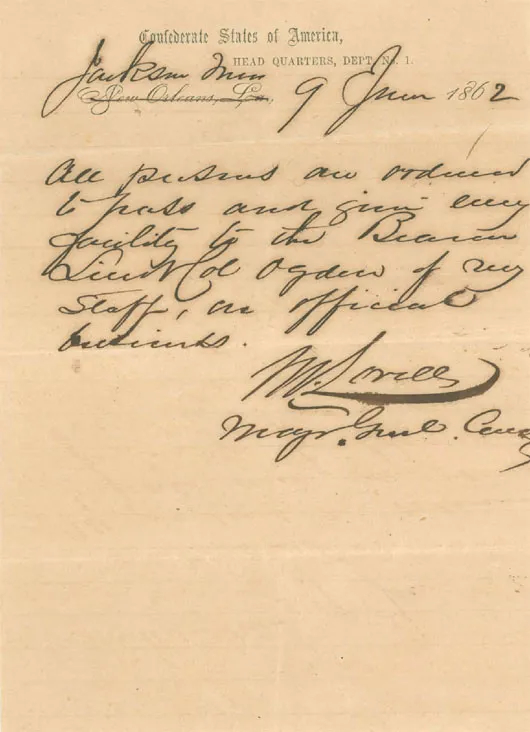 Confederate States of America,
HEAD QUARTERS, DEPT. No. 1.
Jackson Miss
New Orleans, La., 9 June 1862
All persons are ordered
to pass and give every
facility to the Bearer
Lieut Col Ogden of my
Staff, on official
business.
M. Lovell
Major Genl.